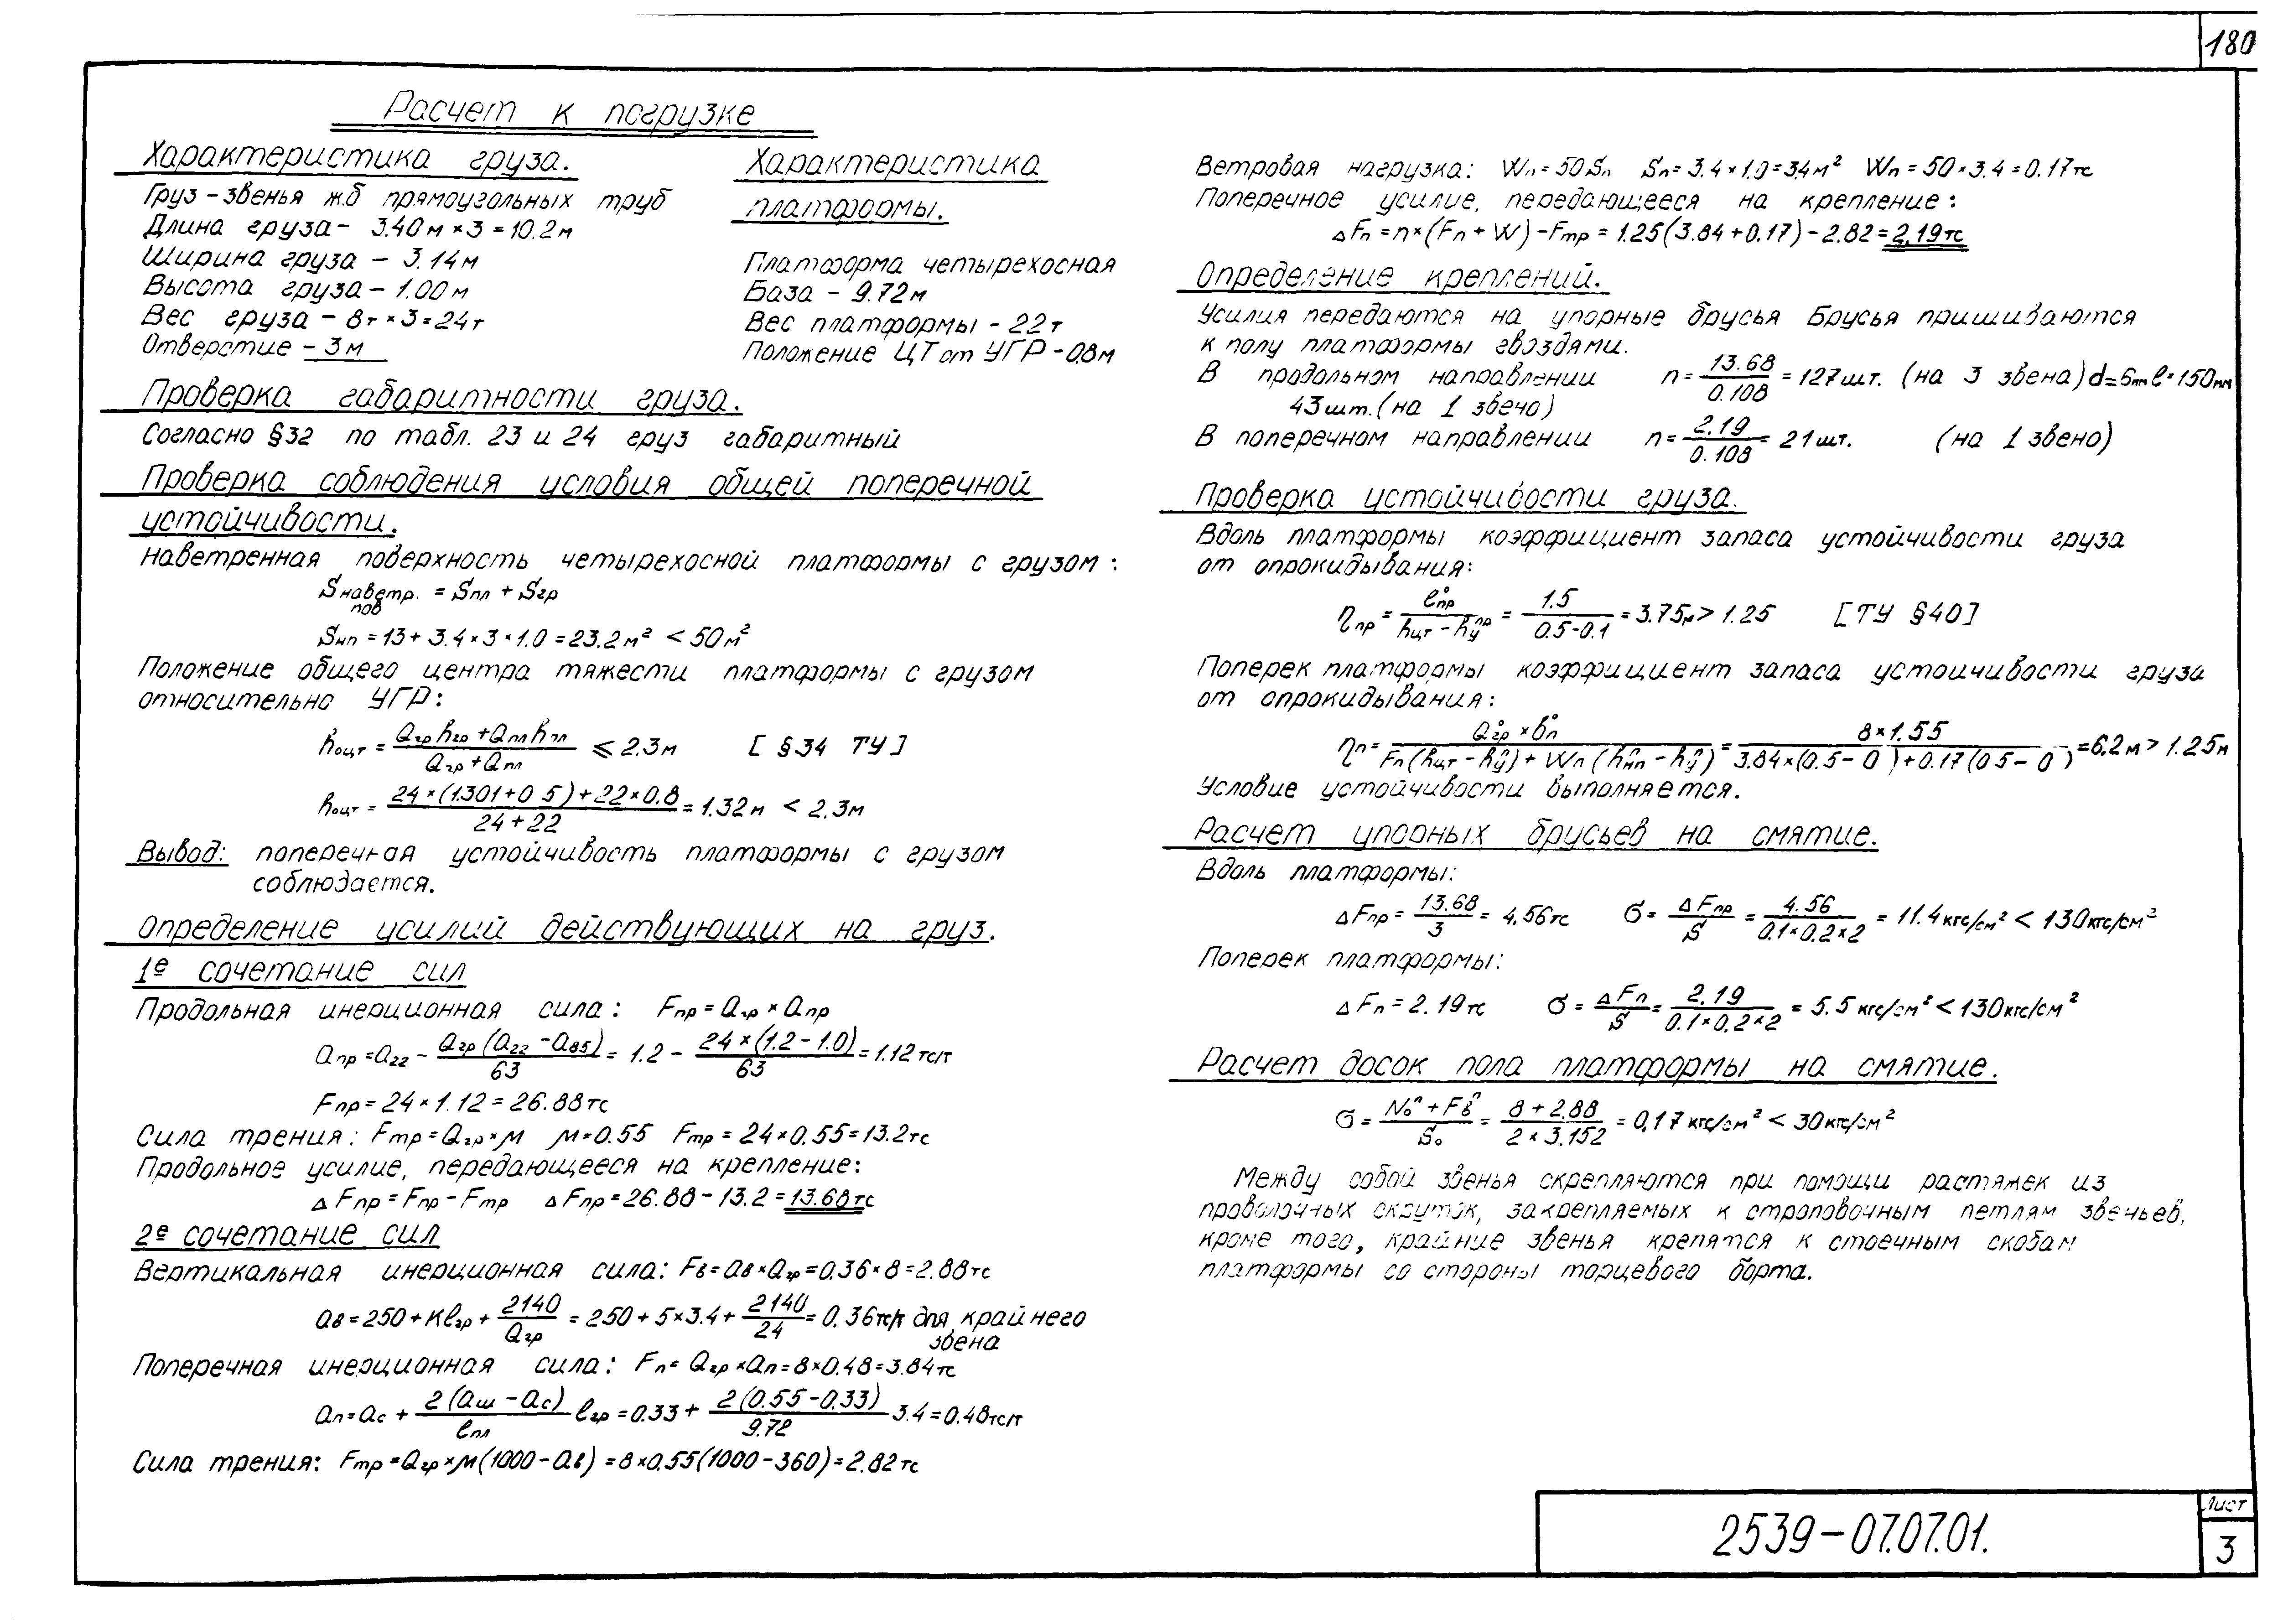 180
Расчет к погрузке
Характеристика груза.
Груз – звенья ж.б прямоугольных труб
Длина груза – 3.40 м × 3 = 10.2 м
Ширина груза – 3.14 м
Высота груза – 1.00 м
Вес груза – 8т × 3 = 24т
Отверстие – 3 м
Характеристика
платформы.
Платформа четырехосная
База – 9.72 м
Вес платформы – 22 т
Положение ЦТ от УГР – 0,8 м
Проверка габаритности груза.
Согласно §32 по табл. 23 и 24 груз габаритный
Проверка соблюдения условия общей поперечной
устойчивости.
Наветренная поверхность четырехосной платформы с грузом :
Sнаветр. пов = Sпл + Sгр
Sнп = 13 + 3.4 × 3 × 1.0 = 23.2 м² < 50 м²
Положение общего центра тяжести платформы с грузом
относительно УГР:
hоцт = (Qгр hгр + Qпл hпл) / (Qгр + Qпл) ⩽ 2.3 м [ §34 ТУ ]
hоцт = (24 × (1.301 + 0 5) + 22 × 0.8) / (24 + 22) = 1.32 м < 2.3 м
Вывод: поперечная устойчивость платформы с грузом
соблюдается.
Определение усилий действующих на груз.
1е сочетание сил
Продольная инерционная сила : Fпр = Qгр × aпр
aпр = a22 – Qгр (a22 – a85) / 63 = 1.2 – 24 × (1.2 – 1.0) / 63 = 1.12 тс/т
Fпр = 24 × 1.12 = 26.88 тс
Сила трения : Fтр = Qгр × м м = 0.55 Fтр = 24 × 0.55 = 13.2 тс
Продольное усилие, передающееся на крепление:
Δ Fпр = Fпр – Fтр Δ Fпр = 26.88 – 13.2 = 13.68 тс
2е сочетание сил
Вертикальная инерционная сила : Fв = aв × Qгр = 0.36 × 8 = 2.88 тс
aв = 250 + кℓгр + 2140 / Qгр = 250 + 5 × 3.4 + 2140 / 24 = 0.36 тс/т для крайнего
звена
Поперечная инерционная сила : Fп = Qгр × aп = 8 × 0.48 = 3.84 тс
aп = aс + 2 (aш – aс) / ℓпл ℓгр = 0.33 + 2 (0.55 – 0.33) / 9.72 3.4 = 0.48 тс/т
Сила трения: Fтр = Qгр × м (1000 – aв) = 8 × 0.55 (1000 – 360) = 2.82 тс
Ветровая нагрузка : Wп = 50 Sп Sп = 3.4 × 1.0 = 3.4 м² Wп = 50 × 3.4 = 0.17 тс
Поперечное усилие, передающееся на крепление :
Δ Fп = n × (Fп + W) – Fтр = 1.25 (3.84 + 0.17) – 2.82 = 2.19 тс
Определение креплений.
Усилия передаются на упорные брусья Брусья пришиваются
к полу платформы гвоздями.
В продольном направлении n = 13.68 / 0.108 = 127 шт. (на 3 звена) d = 6мм ℓ = 150 мм
43 шт. (на 1 звено)
В поперечном направлении n = 2.19 / 0.108 = 21 шт. (на 1 звено)
Проверка устойчивости груза.
Вдоль платформы коэффициент запаса устойчивости груза
от опрокидывания:
ηпр = ℓ°пр / (hцт – hупр) = 1.5 / (0.5 – 0.1) = 3.75м > 1.25 [ТУ §40]
Поперек платформы коэффициент запаса устойчивости груза
от опрокидывания :
ηп = Q°гр × b°п / (Fп (hцт – hуп) + Wп (hнпп – hуп)) = 8 × 1.55 / (3.84 × (0.5 – 0 ) + 0.17 (0 5 – 0 )) = 6,2 м > 1.25 м
Условие устойчивости выполняется.
Расчет упорных брусьев на смятие.
Вдоль платформы:
Δ Fпр = 13.68 / 3 = 4.56 тс σ = Δ Fпр / S = 4.56 / (0.1 × 0.2 × 2) = 11.4 кгс/см² < 130 кгс/см²
Поперек платформы:
Δ Fп = 2.19 тс σ = Δ Fп / S = 2.19 / (0.1 × 0.2 × 2) = 5.5 кгс/см² < 130 кгс/см²
Расчет досок пола платформы на смятие.
σ = (N₀п + Fвп) / S₀ = (8 + 2.88) / (2 × 3.152) = 0,17 кгс/см² < 30 кгс/см²
Между собой звенья скрепляются при помощи растяжек из
проволочных скруток, закрепляемых к строповочным петлям звеньев,
кроме того, крайние звенья крепятся к стоечным скобам
платформы со стороны торцевого борта.
2539–07.07.01.
Лист
3